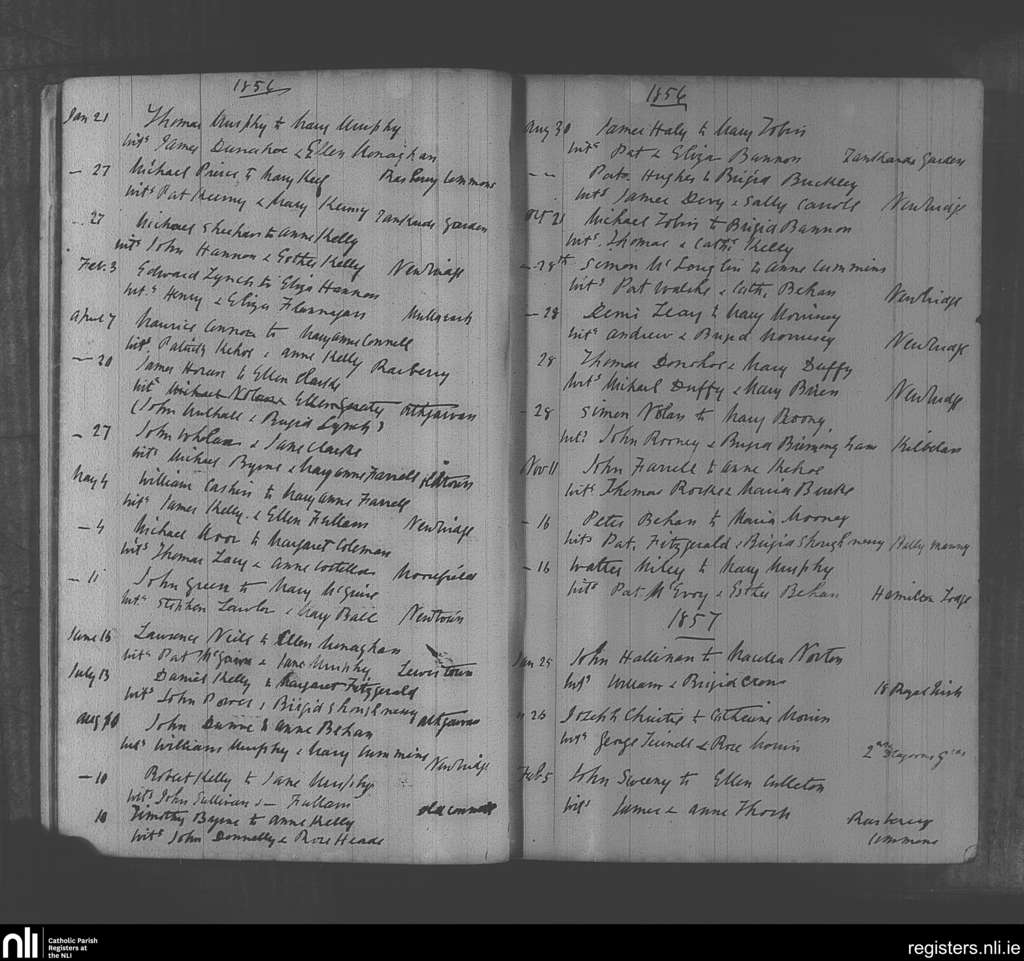 1856
Jan 21 Thomas Murphy to Mary Murphy
Wits James Dunahoe & Ellen Monaghan
— 27 Michael Prince to Mary Keef Rasberry Commons
Wits Pat Kenny & Mary Kenny Zankards Garden
.. 27 Michael Sheehan to Anne Kelly
Wits John Hannon & Esther Kelly Newbridge
Feb. 3 Edward Lynch to Eliza Hannon
Wits Henry & Eliza Flannagan
April 7 Maurice Connor to Maryanne Connell
Wits Patrick Kehoe & Anne Kelly Rasberry
— 20 James Horan to Ellen
Wits Michael Ellen Geraty Athgarvan
(John Mulhall & Brigid Lynch)
— 27 John Whelan & Jane Clarke
Wits Michael Byrne & Mary Anne Farrell Oldtown
May 4 William Cashin to Mary Anne Farrell
Wits James Kelly & Ellen Fullam Newbridge
— 4 Michael Moor to Margaret Coleman
Wits Thomas Lacy & Anne Costello Moorefield
— 11 John Green to Mary McGuire
Wits Stephen Lawlor & Mary Ball Newtown
June 16 Lawrence Neill to Ellen Monaghan
Wits Pat & Jane Murphy Lewistown
July 13 Daniel Kelly to Margaret Fitzgerald
Wits John Power & Brigid Shoughnessy Athgarvan
Aug 10 John Dunne to Anne Behan
Wits William Murphy & Mary Cummins Newbridge
— 10 Robert Kelly to Jane Murphy
Wits John Sullivan & — Fullam Old Connell
10 Timothy Byrne to Anne Kelly
Wits John Donnelly & Rose Heade
1856
Aug 30 James Haly to Mary Tobin
Wits Pat & Eliza Bannon Zankards Garden
— — Patr Hughes to Brigid Buckley
Wits James Devy & Sally Carroll Newbridge
Oct 21 Michael Tobin to Brigid Bannon
Wits Thomas & Cathe Kelly
— 28th Simon McLouglin to Anne Cummins
Wits Pat Walshe & Cath. Behan Newbridge
— 28 Denis Leary to Mary Morrissey
Wits Andrew & Brigid Morrissey Newbridge
28 Thomas Donohoe & Mary Duffy
Wits Michael Duffy & Mary Brien Newbridge
— 28 Simon Nolan to Mary
Wits John Rooney & Brigid Birmingham Kilbelan
Nov 11 John Farrell to Anne Kehoe
Wits Thomas Rorke & Maria Burke
— 16 Peter Behan to Maria Mooney
Wits Pat. Fitzgerald & Brigid Shoughnessy Ballymanny
— 16 Walter Miley to Mary Murphy
Wits Pat McEvoy & Esther Behan Hamilton Lodge
1857
Jan 25 John Hallinan to Norton
Wits William & Brigid Crone 18 Royal Irish
" 26 Joseph Christie to Catherine Morrin
Wits George & Rose Morrin 2nd Dragoons Gds
Feb 5 John Sweeny to Ellen Culleton
Wits James & Anne Thorp Rasberry
Commons
nli Catholic Parish
Registers at
the NLI
registers.nli.ie